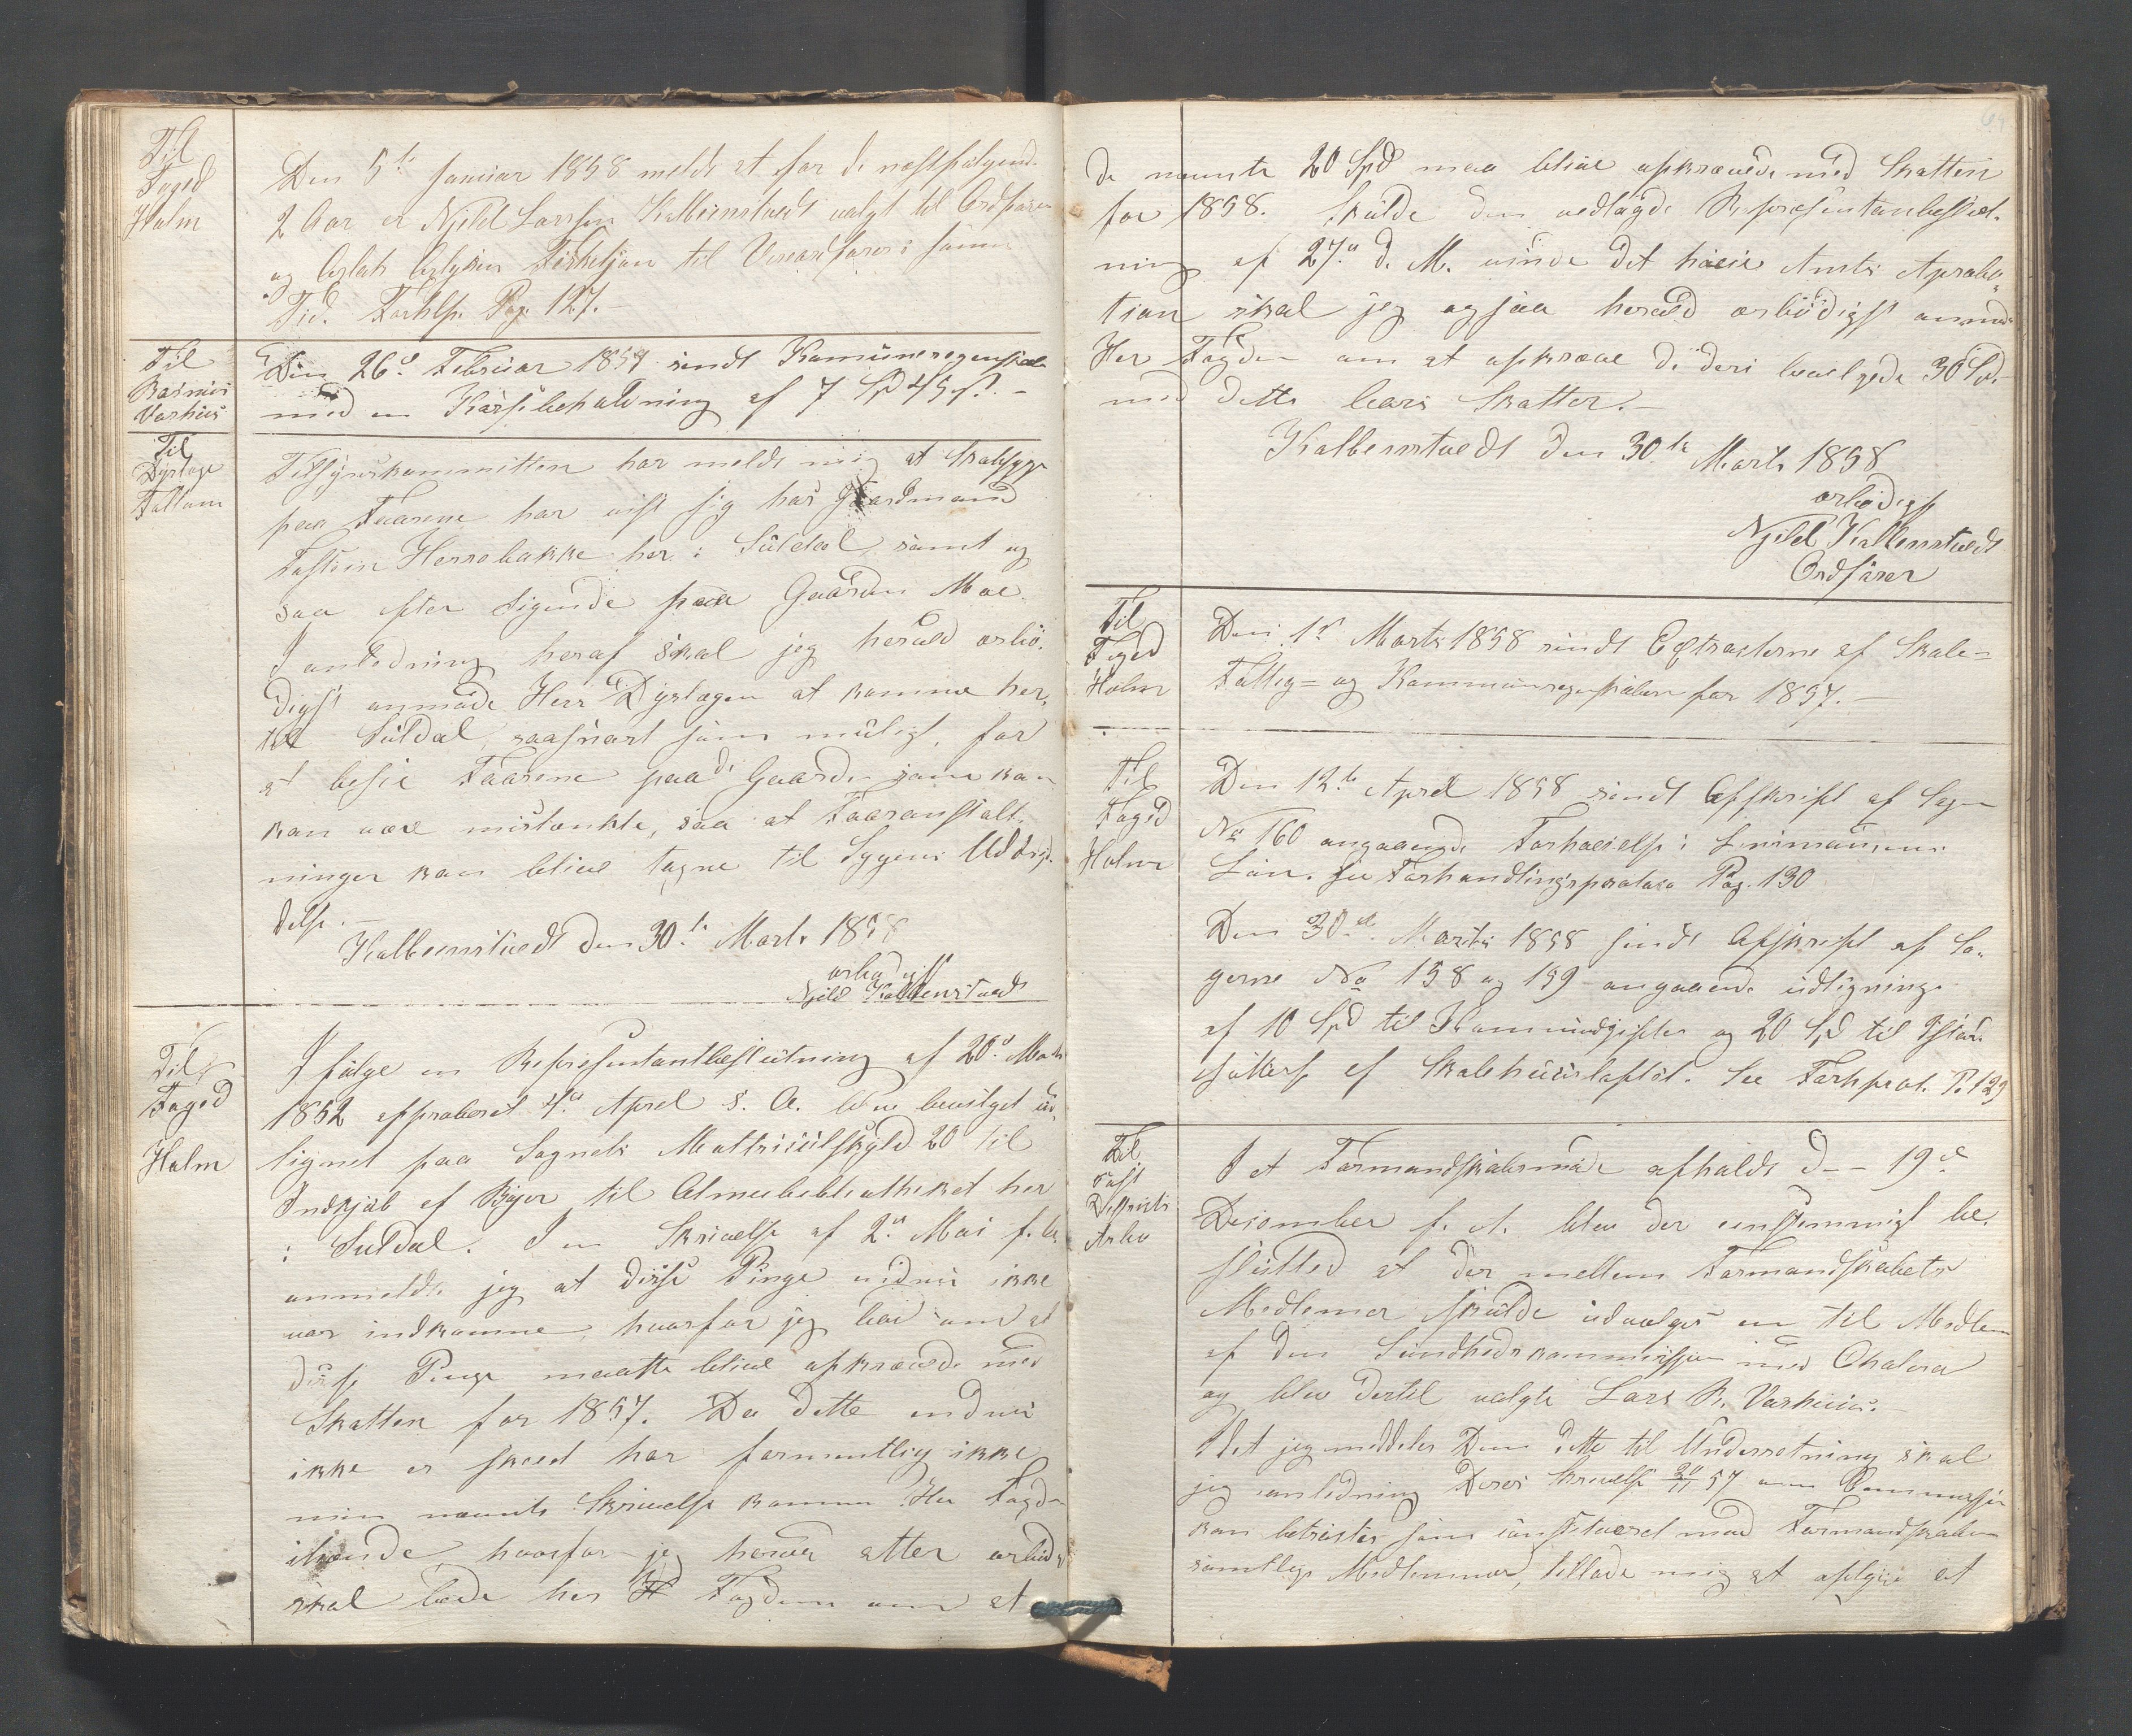 Til
Foged
Holm
Den 5te Januar 1858 meldt at for de næstfølgende
2 Aar er Njeld Larssen Kolbeinstvedt valgt til Ordfører
og til Viceordfører i samme
Tid. Forhlp. Pag. 127.
Til
Rasmus
Vashus
Den 26d Februar 1857 sendt Komuneregenskab
med en Kassebeholdning af 7 Spd 45 s.
Til
Dyrlæge
Tilsynskommitteen har meldt mig at Skabsyge
paa Faarene har vist sig hos Gaardmand
Tosten Herrebakke her i Suldal samt og
saa efter Sigende paa Gaarden Moe.
I anledning heraf skal jeg herved ærbö-
digst anmode Herr Dyrlægen at komme her-
til Suldal, saasnart som muligt, for
at besee Faarene paa de Gaarde som kan
kan være mistænkte, saa at Foranstalt-
ninger kan blive tagne til Sygens Udryd-
delse.
Kolbeenstvedt den 30te Marts 1858
ærbødigst
Njeld Kolbenstvedt
Til
Foged
Holm
I følge en Representantbeslutning af 20d Marts
1852 approberet 4d Aprel s. A. blev bevilget ud-
lignet paa Sognets Mattriculskyld 20 til
Indkjøb af Bøger til Almuebibliotheket her
i Suldal. I en Skrivelse af 2d Mai f. A.
anmeldte jeg at disse Penge endnu ikke
var indkomne, hvorfor jeg bad om at
disse Penge maatte blive opkrævede med
Skatten for 1857. Da dette endnu
ikke er skeed har formentlig ikke
min nævnte Skrivelse kommen Her Fogden
ihænde, hvorfor jeg herved atter ærbödigst
skal bede her Fogden om at
de nævnte 20 Spd maa blive opkrævede med Skatten
for 1858. Skulde den vedlagde Representantbeslut-
ning af 27d d. M. vinde det høie Amts Aproba-
tion skal jeg ogsaa herved ærbödigst anmode
Her Fogden om at opkræve de deri bevilgede 30 Spd
med dette Aars Skatter.
Kolbenstvedt den 30te Marts 1858
ærbödigst
Njeld Kolbenstvedt
Ordfører
Til
Foged
Holm
Den 1st Marts 1858 sendt Extrasterne af Skole=
Fattig= og Kommuneregenskaberne for 1857.
Til
Foged
Holm
Den 12te Aprel 1858 sendt Afskrift af Sagen
No 160 angaaende Forhøielse i Lensmannens
Løn. see Forhandlingsprotoco Pag. 130
Den 30te Marts 1858 sendt Afskrift af Sa-
gerne No 158 og 159 angaaende udligning
af 10 Spd til Kommuneudgifter og 20 Spd til Istand-
sættelse af Skolehuuslofts. See Forhprot. P. 129
Til
Districts
I et Formandskabsmøde afholdt d-- 19d
Desember f. A. blev der eenstemmigt be-
slutted at der mellem Formandskabets
Medlemer skulde udvælges en til Medlem
af den Sundhedskommission med Cholera
og blev dertil valgte Lars R. Vashuus.
Idet jeg meddeler Dem dette til Underretning skal
jeg i anledning Deres Skrivelse 20/11 57 om Commissjon
kan betragtes som constitueret med Formandskabets
samtlige Medlemmer, tillade mig at oplyse at